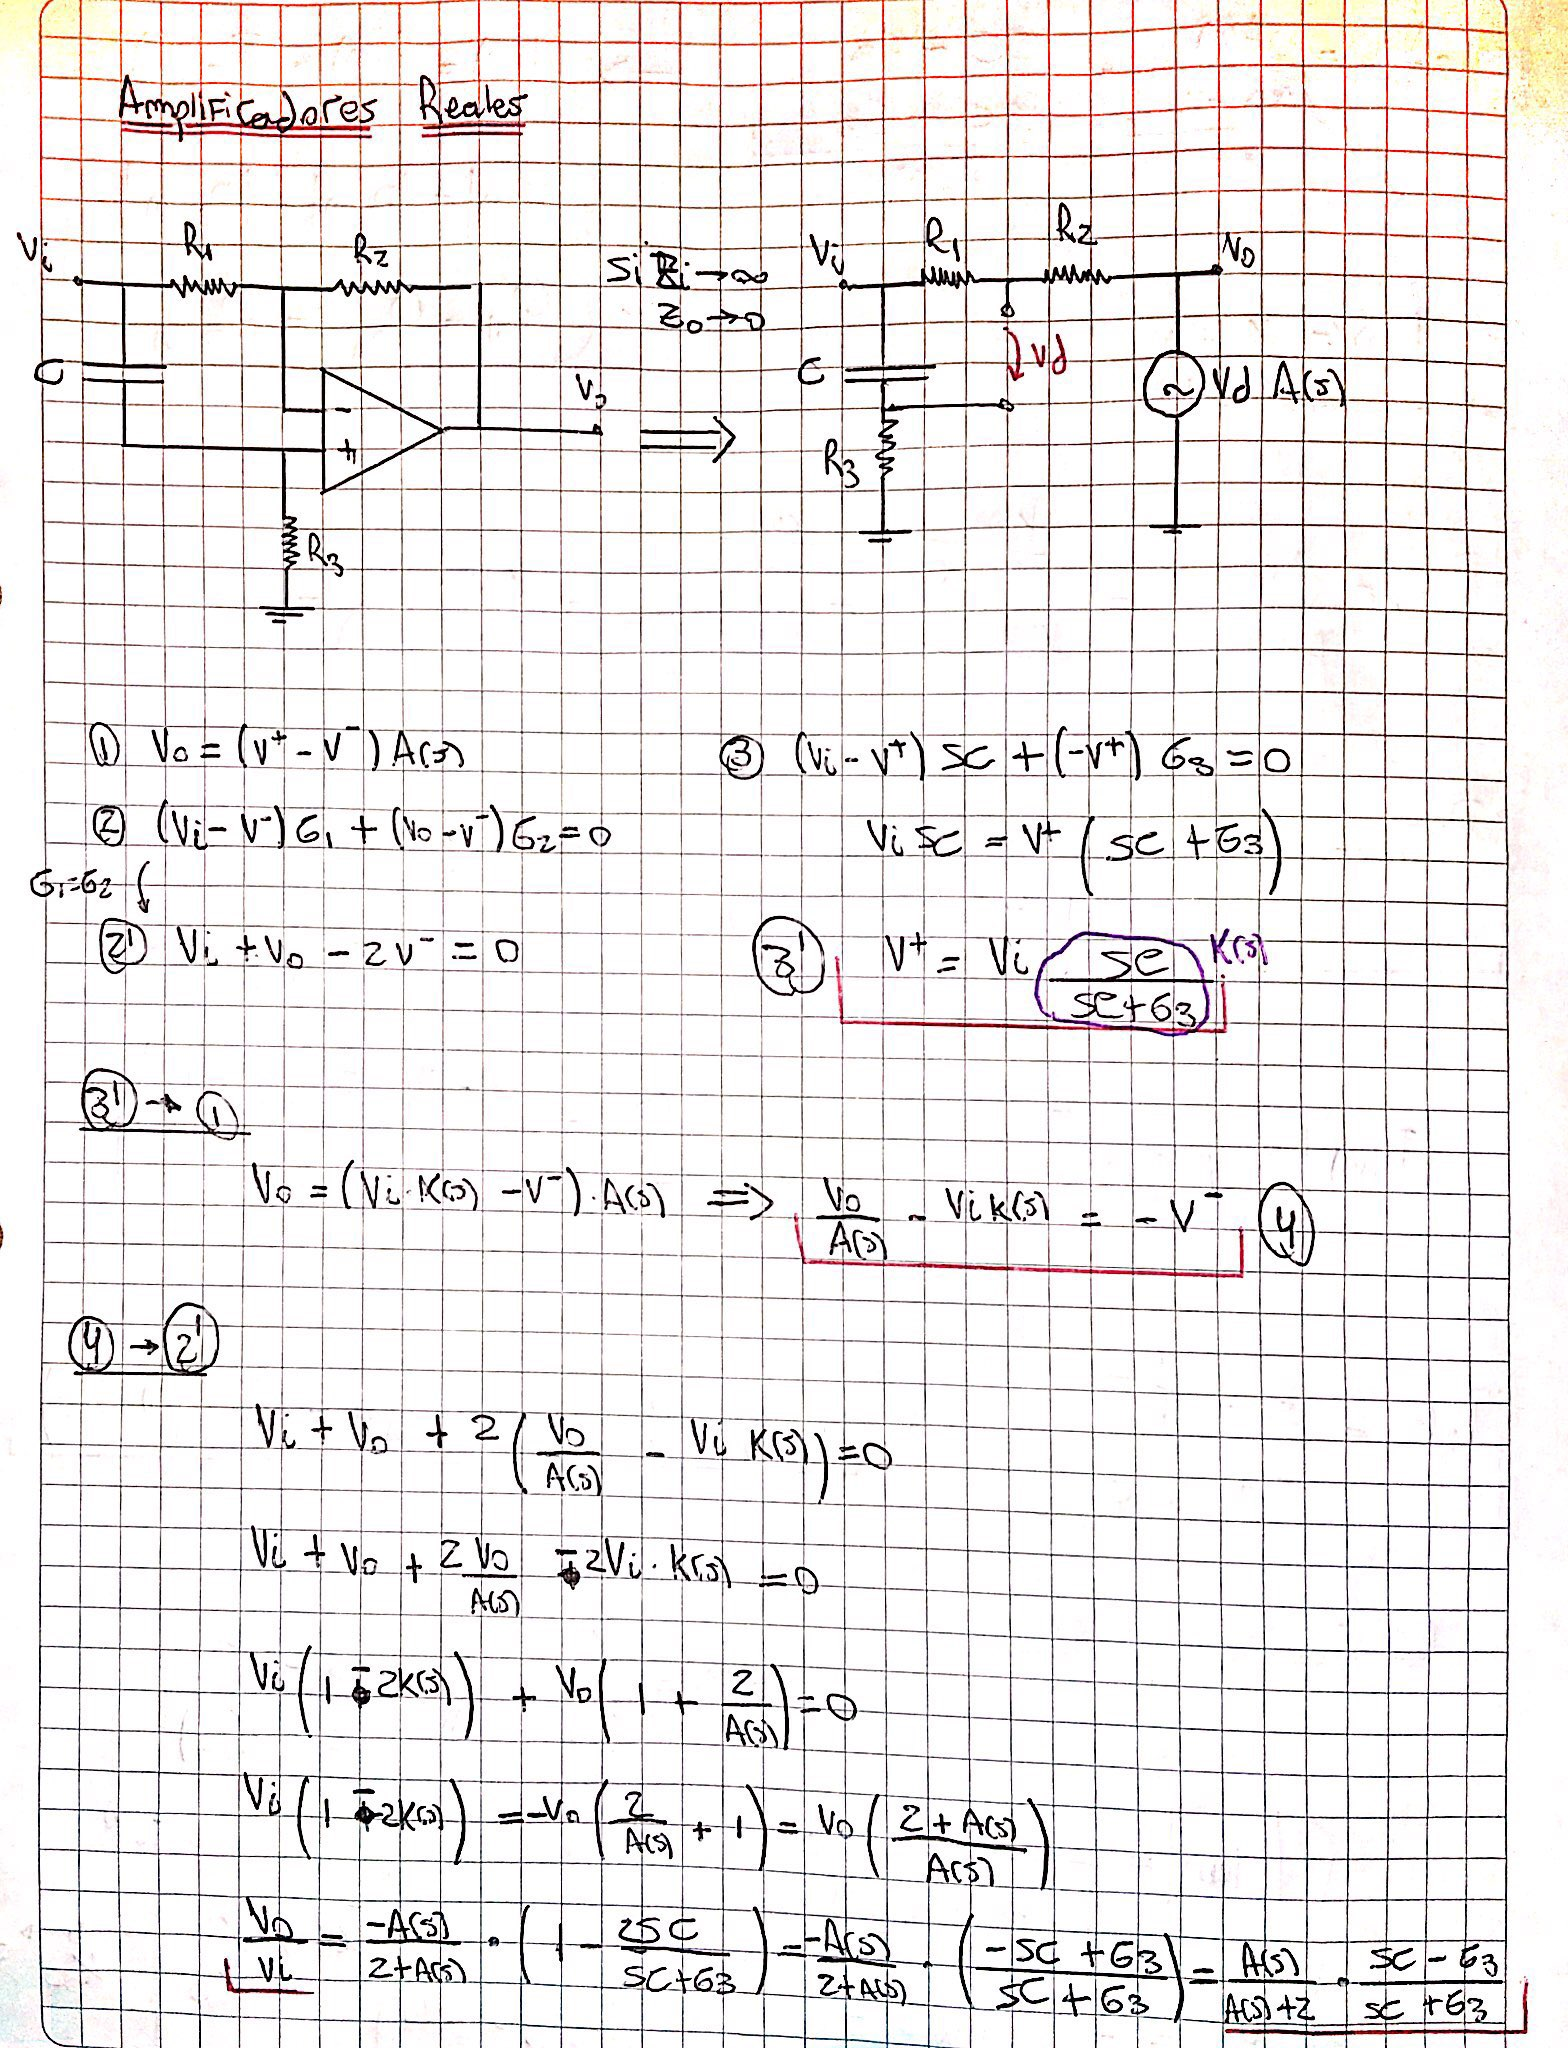 Amplificadores Reales
Vi R1 R2 C - + Vo R3
Si Zi → ∞
Zo → 0
⇒
Vi R1 R2 Vo C Vd R3 ~ Vd A(s)
① Vo = (V⁺ - V⁻) A(s)
② (Vi - V⁻)G1 + (Vo - V⁻)G2 = 0
G1=G2
②' Vi + Vo - 2V⁻ = 0
③ (Vi - V⁺) SC + (-V⁺) G3 = 0
Vi SC = V⁺ (SC + G3)
③' V⁺ = Vi SC/(SC+G3) K(s)
③' → ①
Vo = (Vi·K(s) - V⁻)·A(s) ⇒ Vo/A(s) - Vi K(s) = -V⁻ ④
④ → ②'
Vi + Vo + 2(Vo/A(s) - Vi K(s)) = 0
Vi + Vo + 2Vo/A(s) - 2Vi·K(s) = 0
Vi(1 - 2K(s)) + Vo(1 + 2/A(s)) = 0
Vi(1 - 2K(s)) = -Vo(2/A(s) + 1) = Vo((2 + A(s))/A(s))
Vo/Vi = -A(s)/(2+A(s)) · (1 - 2SC/(SC+G3)) = -A(s)/(2+A(s)) · ((-SC + G3)/(SC + G3)) = A(s)/(A(s)+2) · (SC - G3)/(SC + G3)